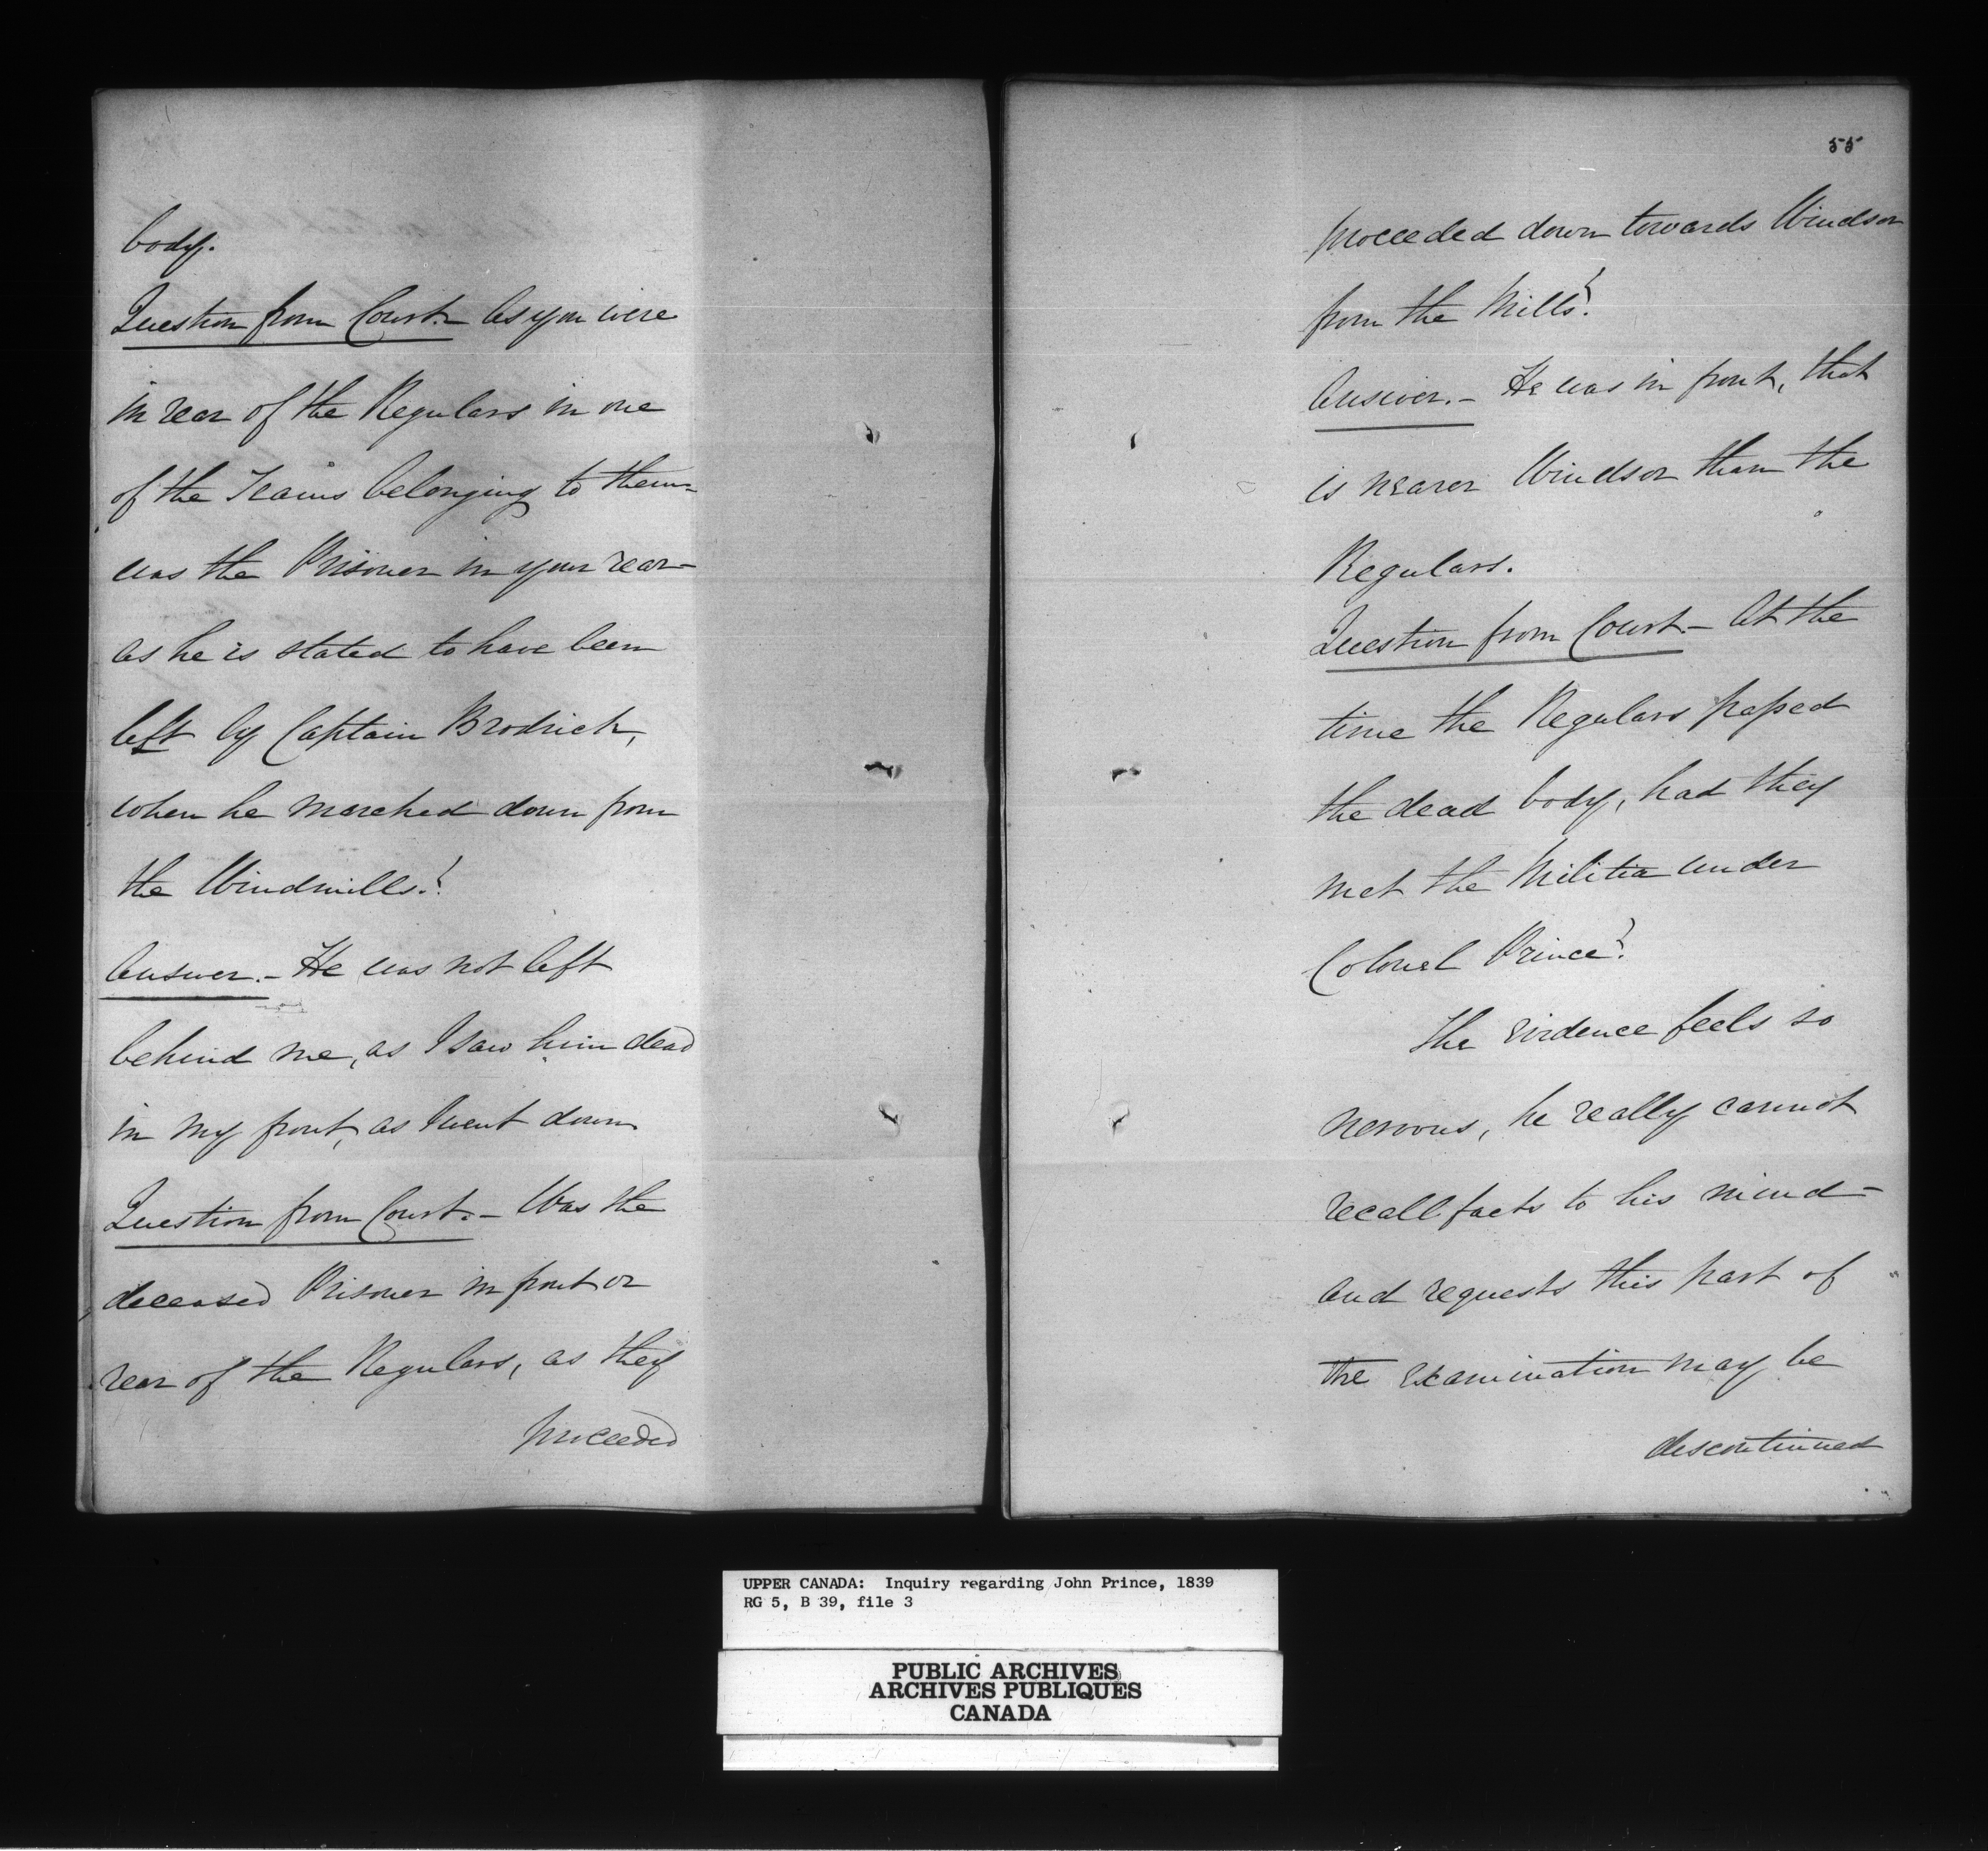 body.
Question from Court.- As you were
in rear of the Regulars in one
of the Teams belonging to them-
was the Prisoner in your rear-
as he is stated to have been
left by Captain Brodrick,
when he marched down from
the Windmills?
Answer.- He was not left
behind me, as I saw him dead
in my front, as I went down
Question from Court.- Was the
deceased Prisoner in front or
rear of the Regulars, as they
proceeded
55
proceeded down towards Windsor
from the Mills?
Answer.- He was in front, that
is nearer Windsor than the
Regulars.
Question from Court.- At the
time the Regulars passed
the dead body, had they
met the Militia under
Colonel Prince?
The Evidence feels so
nervous, he really cannot
recall facts to his mind-
and requests this part of
the examination may be
discontinued
UPPER CANADA: Inquiry regarding John Prince, 1839
RG 5, B 39, file 3
PUBLIC ARCHIVES
ARCHIVES PUBLIQUES
CANADA